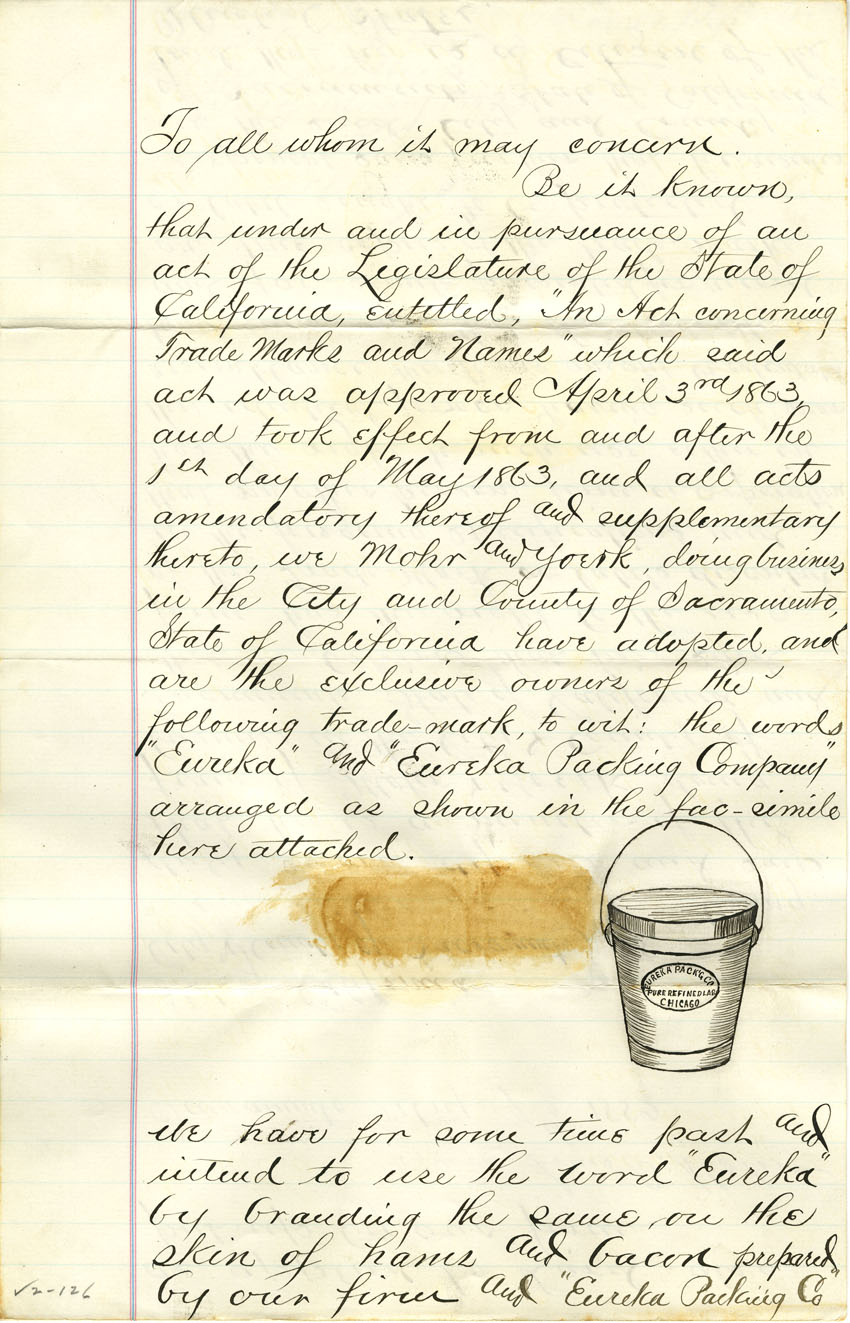 To all whom it may concern.
Be it known,
that under and in pursuance of an
act of the Legislature of the State of
California, entitled, "An Act concerning
Trade Marks and Names" which said
act was approved April 3rd 1863,
and took effect from and after the
1st day of May 1863, and all acts
amendatory thereof and supplementary
thereto, we Mohr and Yoerk, doing business
in the City and County of Sacramento,
State of California have adopted, and
are the exclusive owners of the
following trade-mark, to wit: the words
"Eureka" and "Eureka Packing Company"
arranged as shown in the fac-simile
here attached.
EUREKA PACK'G CO
PURE REFINED LARD
CHICAGO
We have for some time past and
intend to use the word "Eureka"
by branding the same on the
skin of hams and bacon prepared
by our firm and "Eureka Packing Co"
V2-126